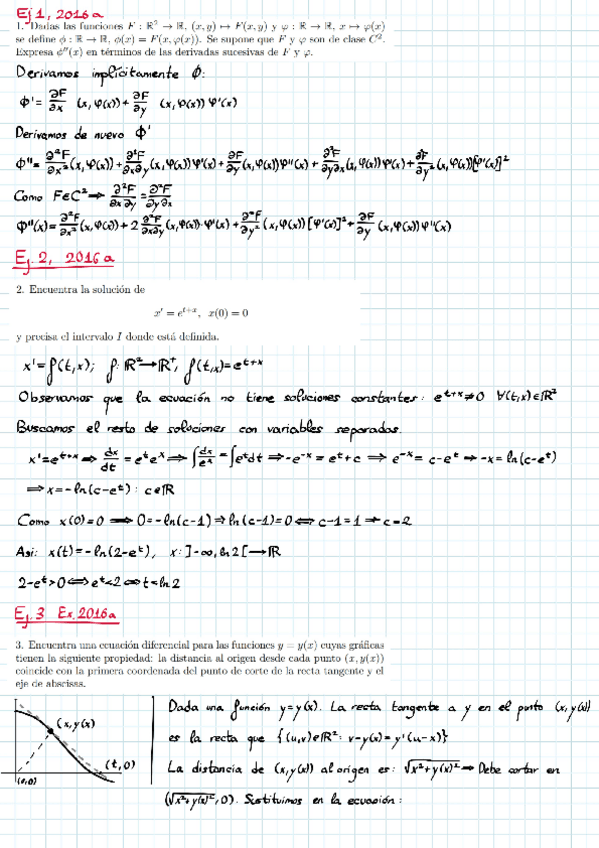 Ej 1, 2016 a
1. Dadas las funciones F : ℝ² → ℝ, (x, y) ↦ F(x, y) y φ : ℝ → ℝ, x ↦ φ(x)
se define ϕ : ℝ → ℝ, ϕ(x) = F(x, φ(x)). Se supone que F y φ son de clase C².
Expresa ϕ''(x) en términos de las derivadas sucesivas de F y φ.
Derivamos implícitamente ϕ:
ϕ' = ∂F/∂x (x, φ(x)) + ∂F/∂y (x, φ(x)) φ'(x)
Derivamos de nuevo ϕ'
ϕ'' = ∂²F/∂x² (x, φ(x)) + ∂²F/∂x∂y (x, φ(x)) φ'(x) + ∂F/∂y (x, φ(x)) φ''(x) + ∂²F/∂y∂x (x, φ(x)) φ'(x) + ∂²F/∂y² (x, φ(x)) [φ'(x)]²
Como F∈C² ⇒ ∂²F/∂x∂y = ∂²F/∂y∂x
ϕ''(x) = ∂²F/∂x² (x, φ(x)) + 2 ∂²F/∂x∂y (x, φ(x)) · φ'(x) + ∂²F/∂y² (x, φ(x)) [φ'(x)]² + ∂F/∂y (x, φ(x)) φ''(x)
Ej. 2, 2016 a
2. Encuentra la solución de
x' = e^{t+x}, x(0) = 0
y precisa el intervalo I donde está definida.
x' = f(t,x); f: ℝ² → ℝ⁺, f(t,x) = e^{t+x}
Observamos que la ecuación no tiene soluciones constantes: e^{t+x} ≠ 0 ∀(t,x)∈ℝ²
Buscamos el resto de soluciones con variables separadas.
x' = e^{t+x} ⇒ dx/dt = e^t e^x ⇒ ∫dx/e^x = ∫e^t dt ⇒ -e^{-x} = e^t + c ⇒ e^{-x} = c - e^t ⇒ -x = ln(c-e^t)
⇒ x = -ln(c-e^t) : c∈ℝ
Como x(0)=0 ⇒ 0 = -ln(c-1) ⇒ ln(c-1) = 0 ⇔ c-1 = 1 ⇒ c = 2
Asi: x(t) = -ln(2-e^t), x: ]-∞, ln 2[ → ℝ
2-e^t > 0 ⇔ e^t < 2 ⇔ t < ln 2
Ej. 3 Ex. 2016 a
3. Encuentra una ecuación diferencial para las funciones y = y(x) cuyas gráficas
tienen la siguiente propiedad: la distancia al origen desde cada punto (x, y(x))
coincide con la primera coordenada del punto de corte de la recta tangente y el
eje de abscisas.
(x, y(x)
(t, 0)
(0,0)
Dada una función y=y(x). La recta tangente a y en el punto (x, y(x))
es la recta que {(u,v)∈ℝ²: v-y(x) = y'(u-x)}
La distancia de (x, y(x)) al origen es: √x²+y(x)² ⇒ Debe cortar en
(√x²+y(x)², 0). Sustituimos en la ecuación: